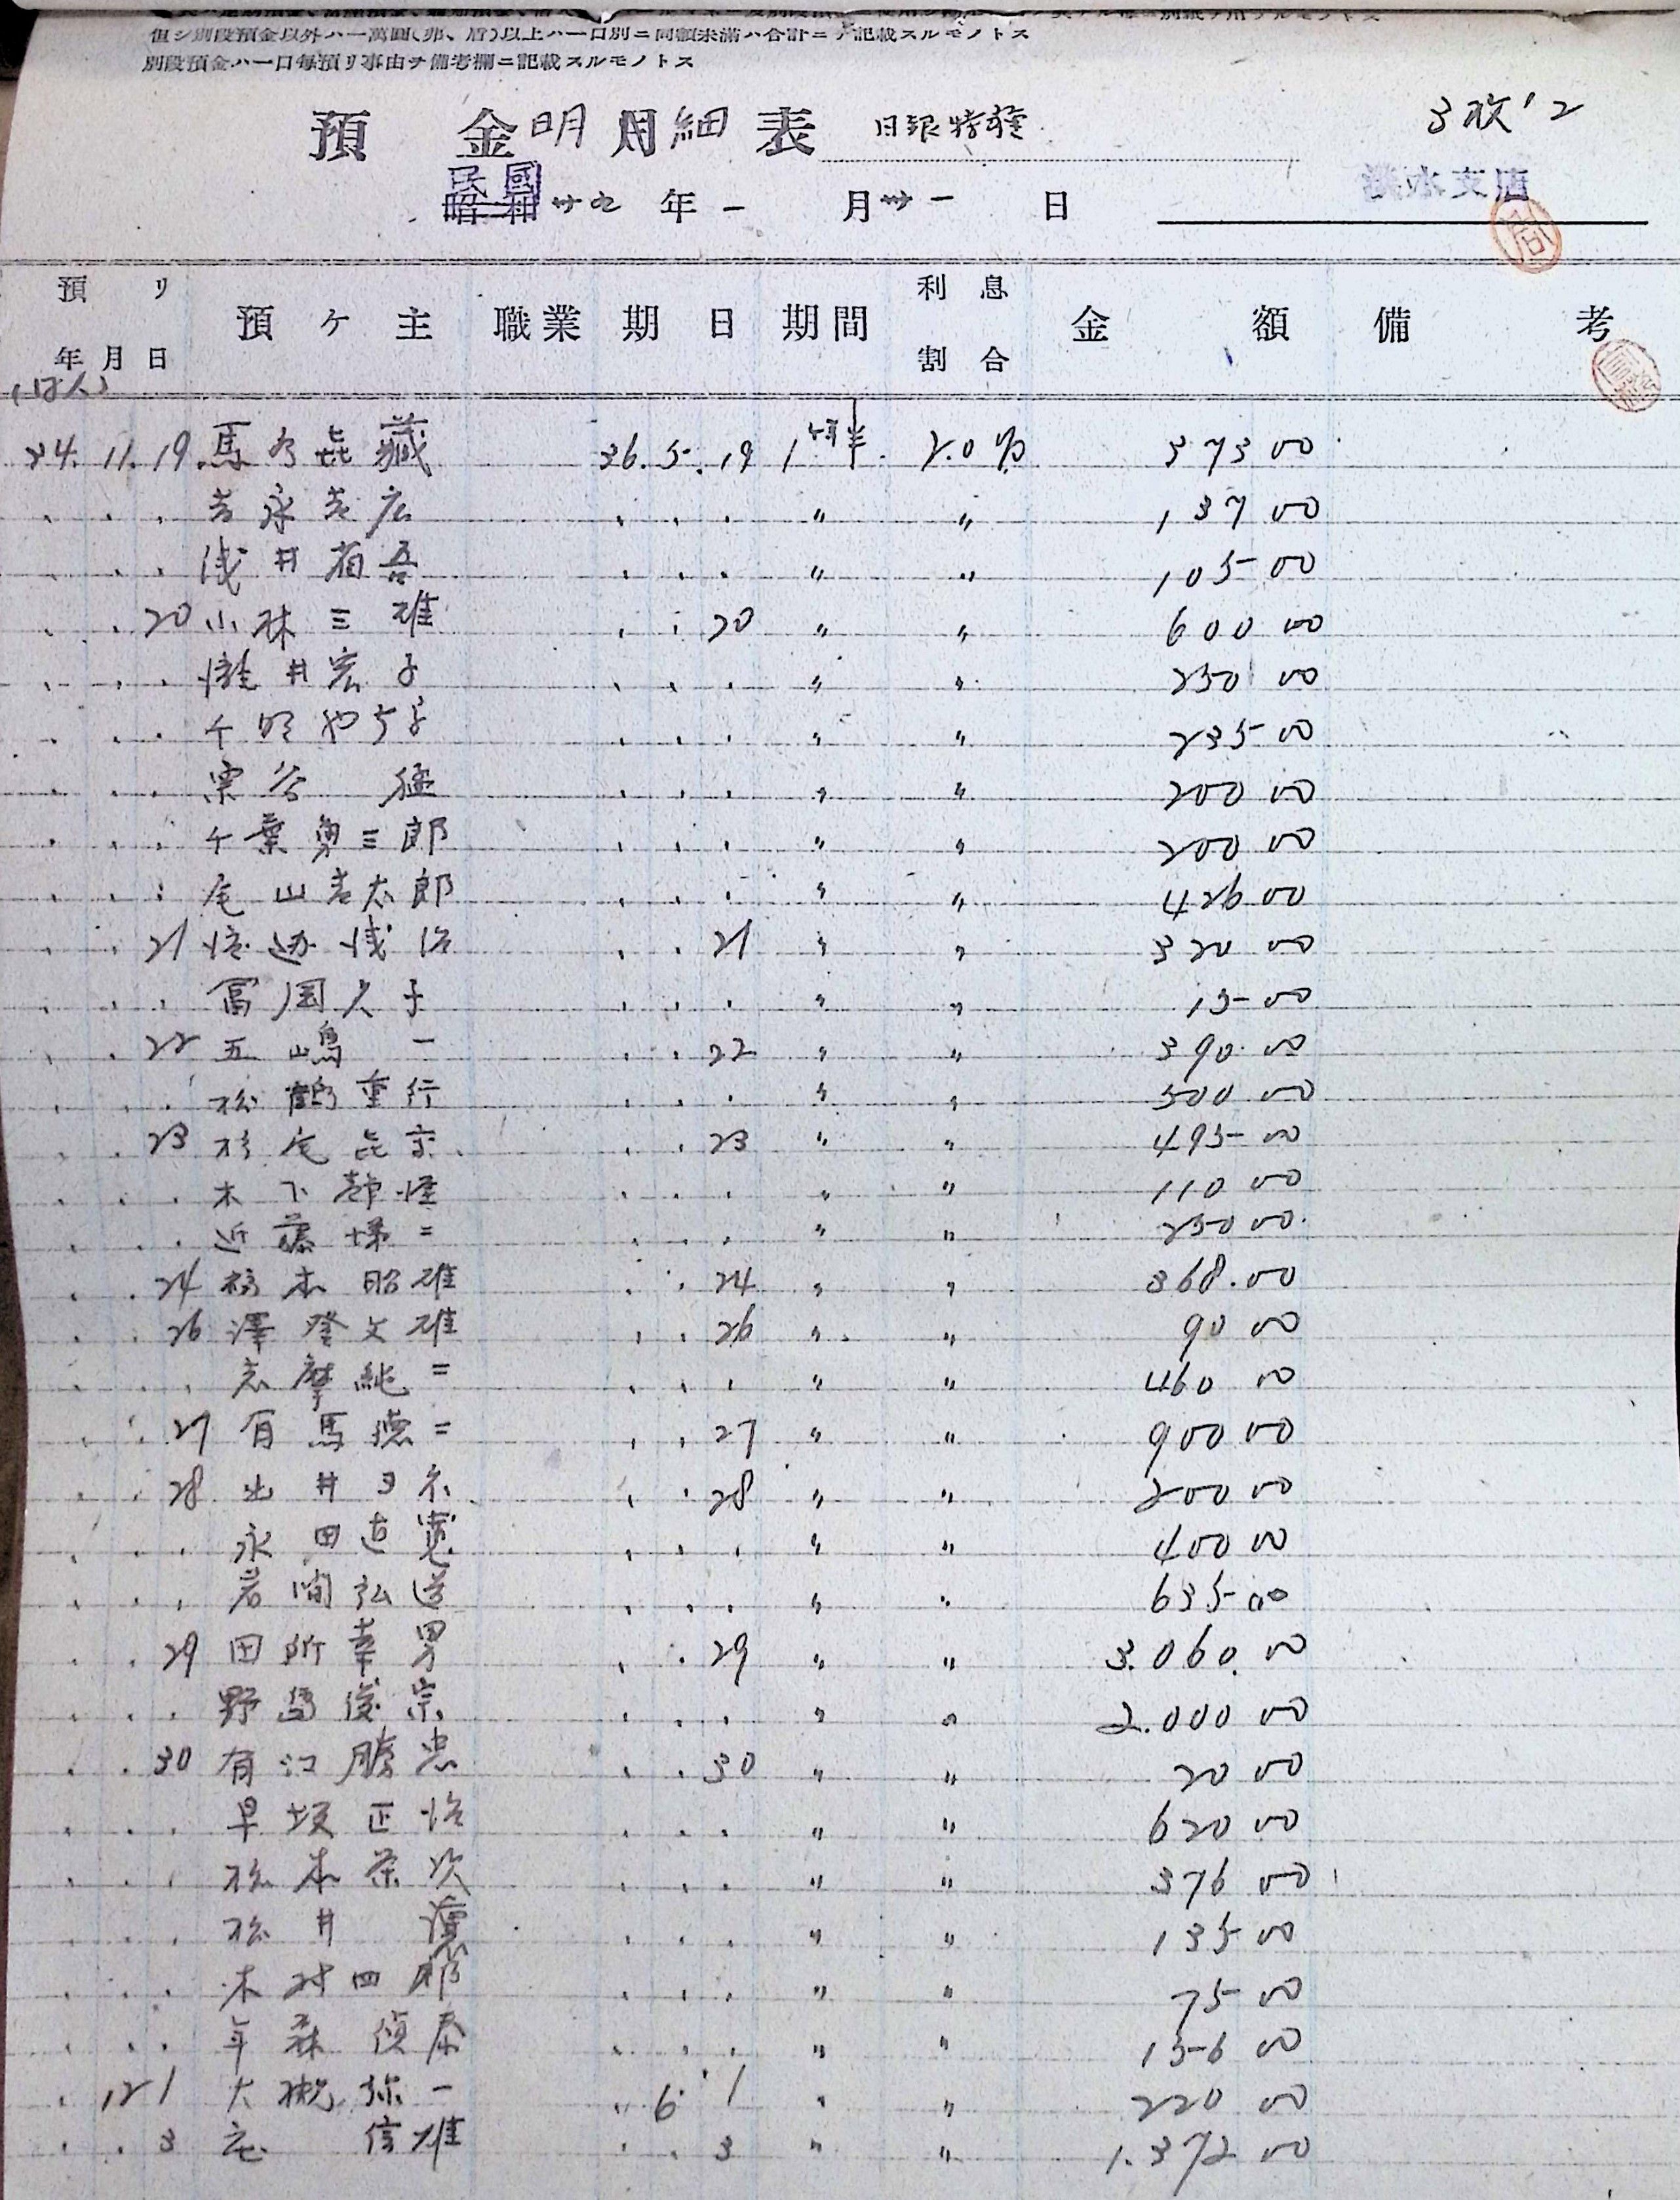 但シ別段預金以外ハ一萬圓(弗、盾)以上ハ一口別ニ同額未滿ハ合計ニテ記載スルモノトス
別段預金ハ一口每預リ事由ヲ備考欄ニ記載スルモノトス
3枚'2
預金明細表 日銀特種
淡水支店
民國 昭和 廿九年一月卅一日
預リ年月日 預ケ主 職業 期日 期間 利息割合 金額 備考
(日人)
34. 11. 19. 馬 喜藏 36. 5. 19 1ヶ年半 2.0% 373 00
. . . 吉永吉広 . . . 〃 〃 137 00
. . . 浅井省吾 . . . 〃 〃 105 00
. . 20 小林三雄 . . 20 〃 〃 600 00
. . . 井宏子 . . . 〃 〃 250 00
. . . 千 や子 . . . 〃 〃 235 00
. . . 栗谷 猛 . . . 〃 〃 200 00
. . . 千葉勇三郎 . . . 〃 〃 200 00
. . . 尾山吉太郎 . . . 〃 〃 426 00
. . 21 . . 21 〃 〃 320 00
. . . 冨岡久子 . . . 〃 〃 15 00
. . 22 五嶋 一 . . 22 〃 〃 390 00
. . . 松鶴重行 . . . 〃 〃 500 00
. . 23 杉尾喜 . . 23 〃 〃 495 00
. . . 木下静 . . . 〃 〃 110 00
. . . 近藤 二 . . . 〃 〃 250 00
. . 24 橋本昭雄 . . 24 〃 〃 368.00
. . 26 澤登文雄 . . 26 〃 〃 90 00
. . . 志摩純二 . . . 〃 〃 460 00
. . 27 有馬德二 . . 27 〃 〃 900 00
. . 28 出井 . . 28 〃 〃 200 00
. . . 永田直寛 . . . 〃 〃 400 00
. . . 岩間弘道 . . . 〃 〃 635 00
. . 29 田所幸男 . . 29 〃 〃 3.060.00
. . . 野 俊宗 . . . 〃 〃 2.000 00
. . 30 有江勝忠 . . 30 〃 〃 20 00
. . . 早坂正治 . . . 〃 〃 620 00
. . . 松本栄次 . . . 〃 〃 376 00
. . . 松井 . . . 〃 〃 135 00
. . . 木村四郎 . . . 〃 〃 75 00
. . . 年森 泰 . . . 〃 〃 156 00
. 12 1 大槻弥一 . 6. 1 〃 〃 220 00
. . 3 信雄 . . 3 〃 〃 1.372 00